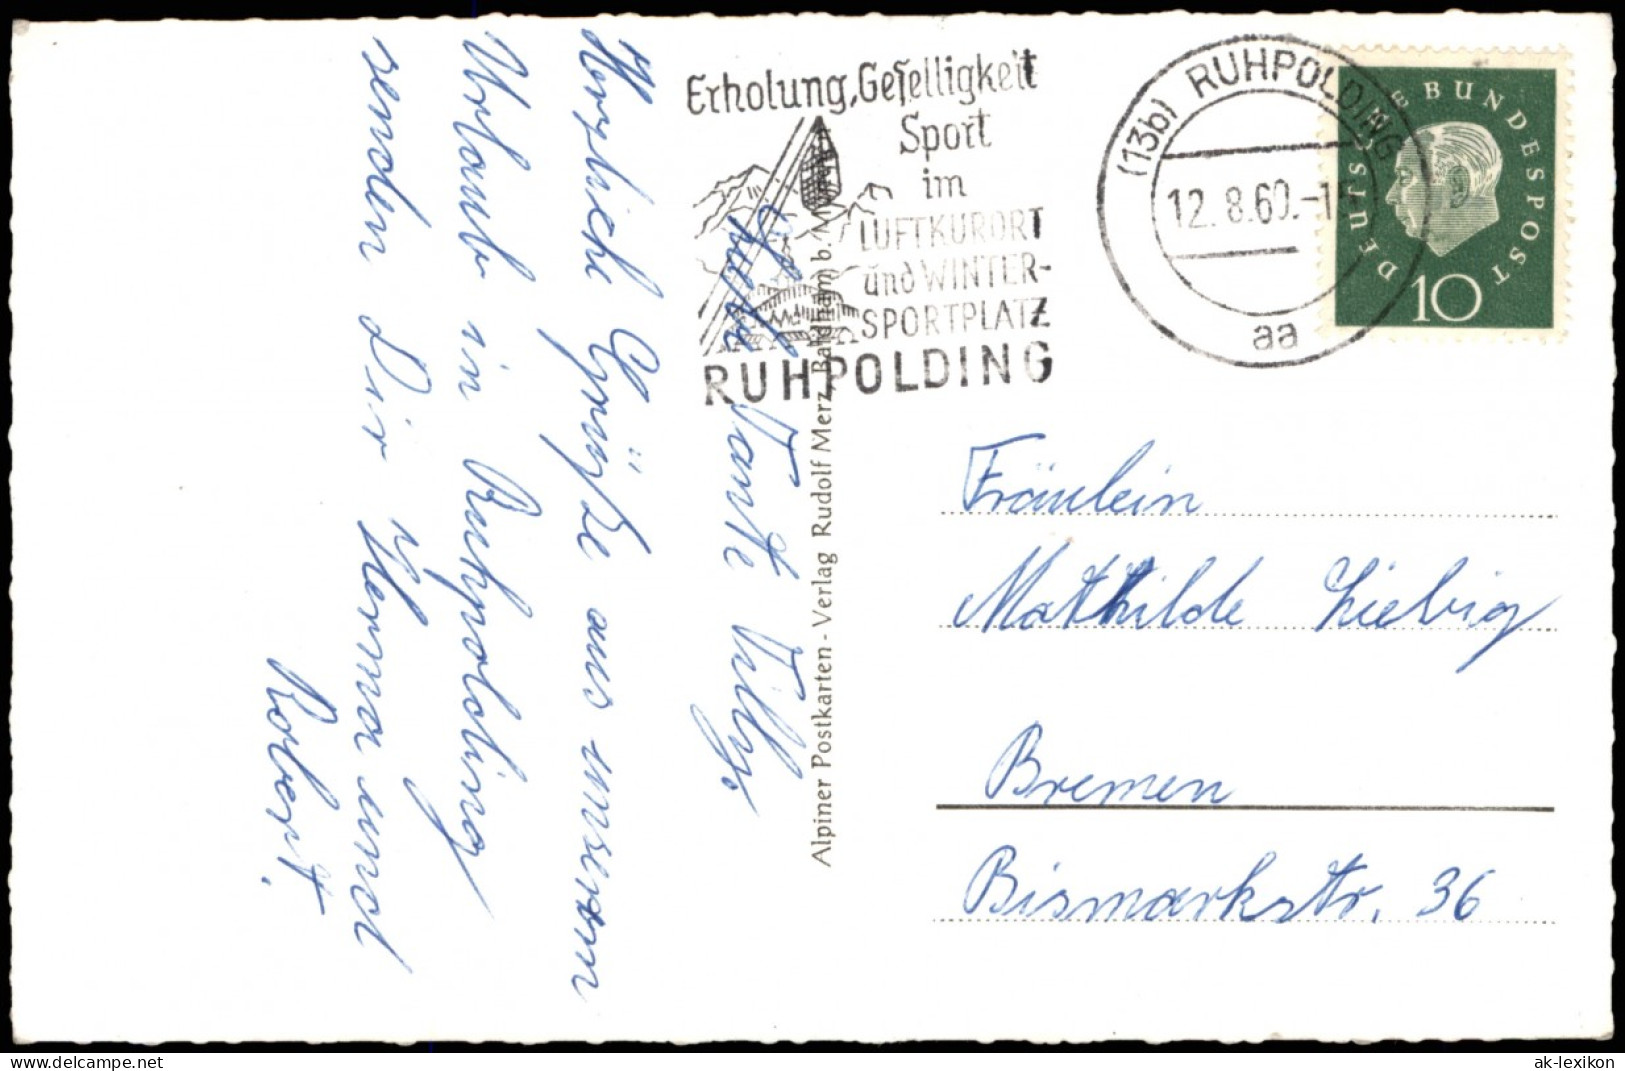 Erholung, Geselligkeit
Sport
im
LUFTKURORT
und WINTER-
SPORTPLATZ
RUHPOLDING
(13b) RUHPOLDING
12.8.60.-1
aa
DEUTSCHE BUNDESPOST
10
Gute Tante Tilly
Herzliche Grüße aus unserem
Urlaub in Ruhpolding
senden Dir Herma und
Robert.
Alpiner Postkarten - Verlag Rudolf Merz, Baldham b. M
Fräulein
Mathilde Liebig
Bremen
Bismarkstr. 36
www.delcampe.net
ak-lexikon